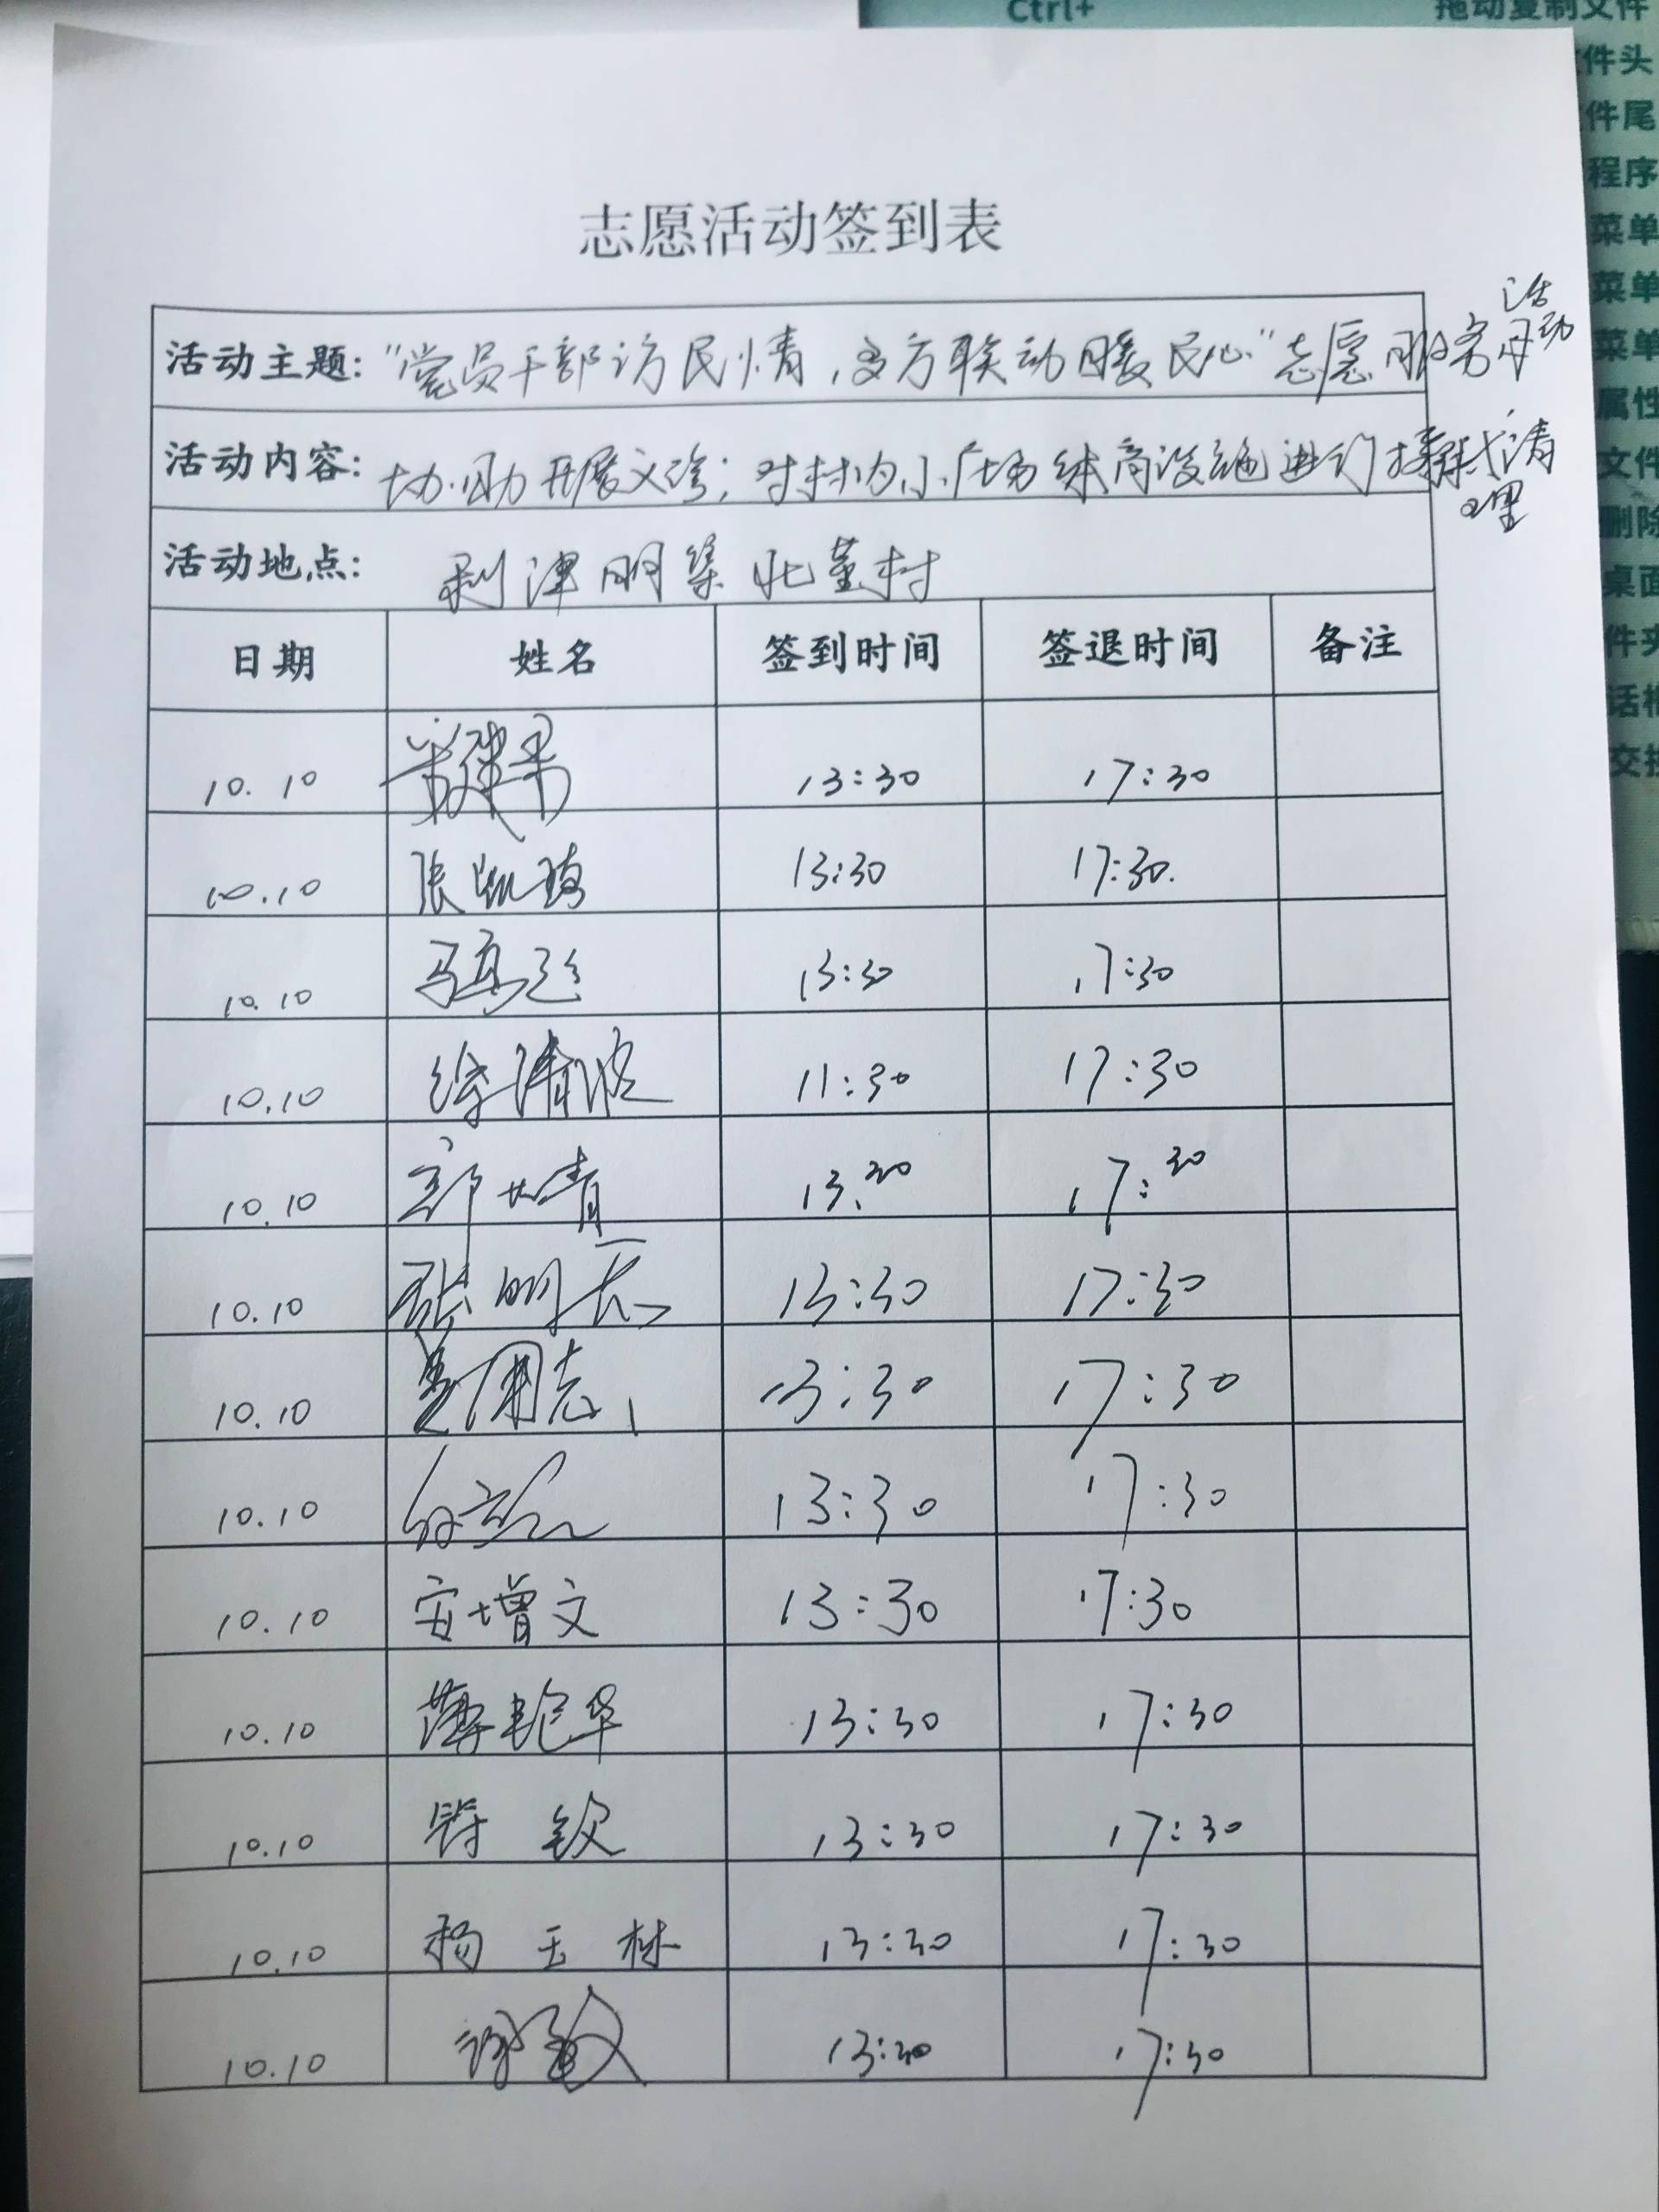 Ctrl+ 拖动复制文件
件头
件尾
程序
菜单
菜单
菜单
属性
文件
删除
桌面
件夹
志愿活动签到表
活动主题:"党员干部访民情,多方联动暖民心"志愿服务月活动
活动内容:协助开展义诊;对村内小广场体育设施进行擦拭清理
活动地点: 利津明集北董村
日期 姓名 签到时间 签退时间 备注
10.10 13:30 17:30
10.10 张凯琦 13:30 17:30.
10.10 13:30 17:30
10.10 徐清波 11:30 17:30
10.10 13:30 17:30
10.10 张明 13:30 17:30
10.10 13:30 17:30
10.10 13:30 17:30
10.10 安增文 13:30 17:30
10.10 薄艳华 13:30 17:30
10.10 钦 13:30 17:30
10.10 杨玉林 13:30 17:30
10.10 谢敏 13:30 17:30